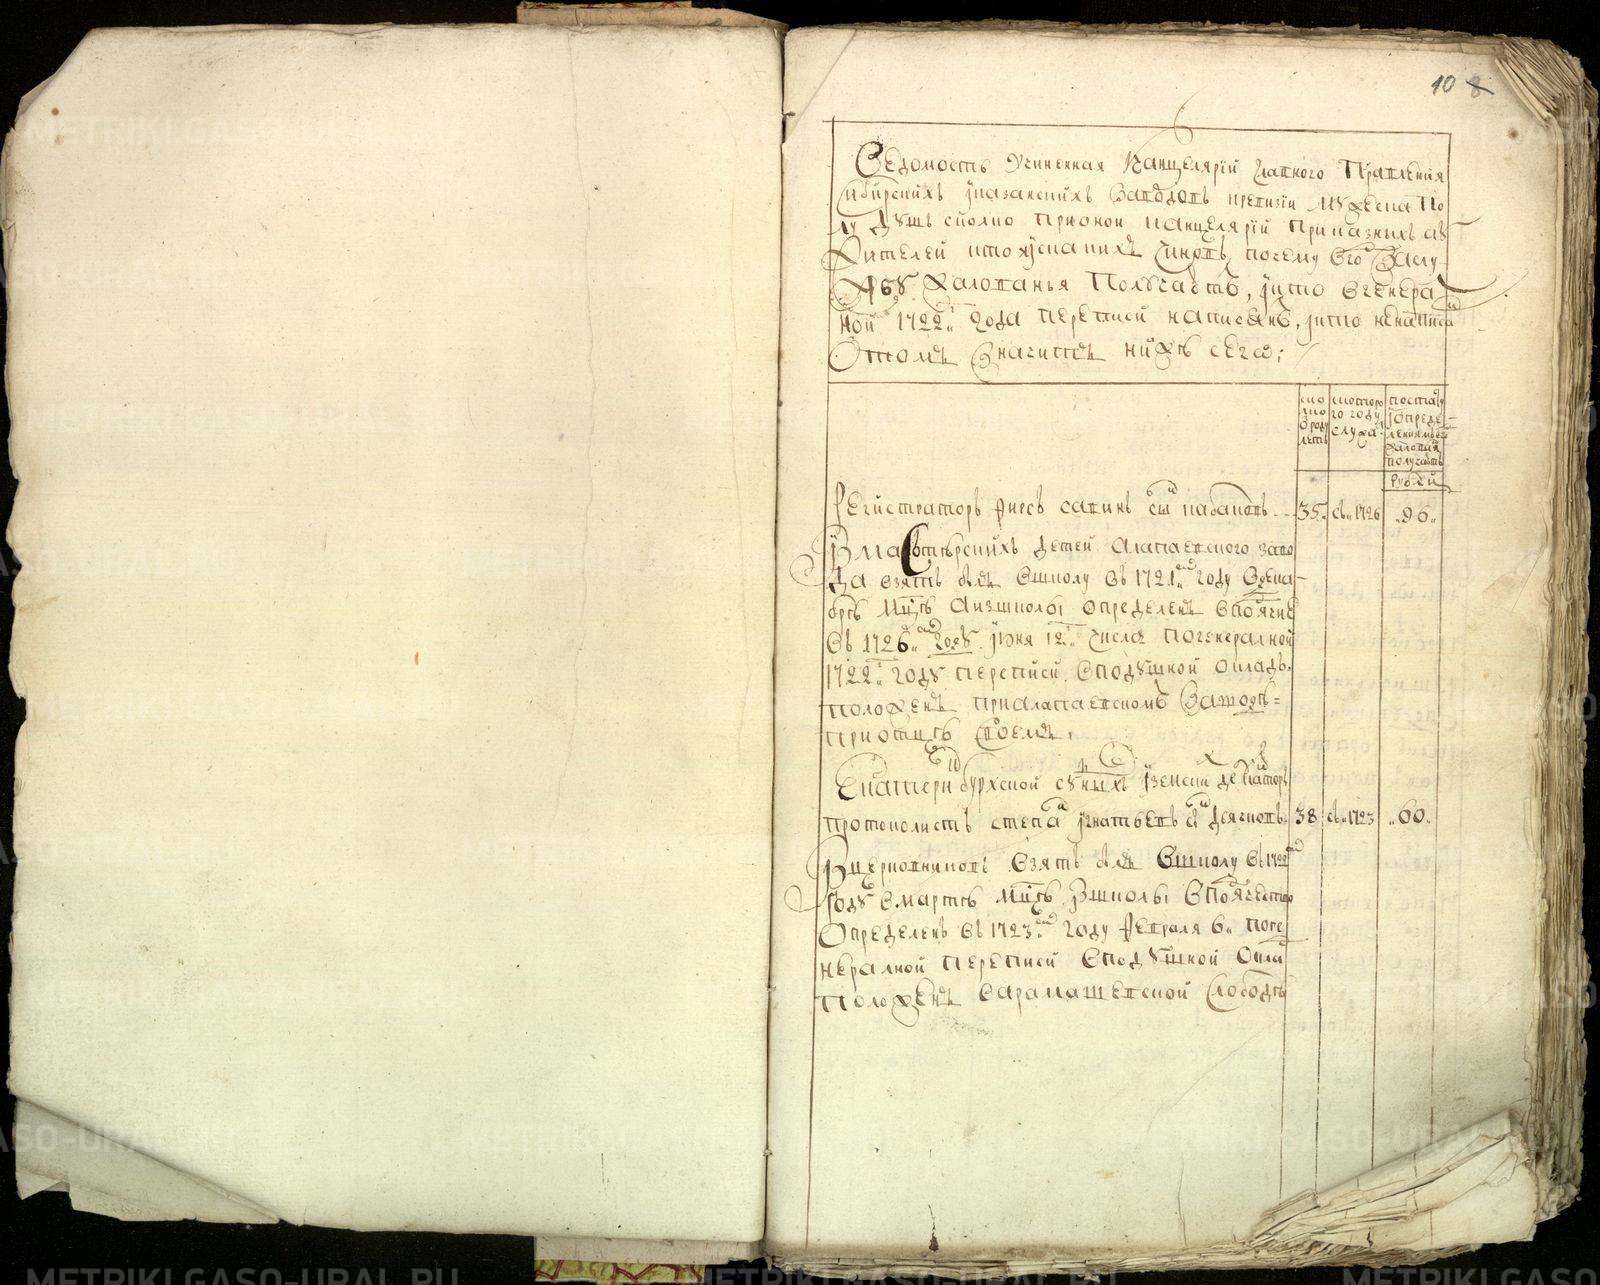 10 8
Ведомость учиненная Канцелярїи главного Правления
сибирских и казанских заводов ревизїи мужеска по
лу душ сколко при оной канцелярїи приказных слу
жителей и протчих чинов почему кто за слу
жбу жалованья получает, и кто в генерал
ной 1722г года переписи написан, и кто ненаписан
о том значит ниже сего;
сколко
от роду
лет
с которо
го году
в службе
по штату
и опреде
лениям
жалованья
получает
рублей
Регистратор Фирс Савин сын Кабаков 35 с 1726 96
Из мастерских детей Алапаевского заво
да взят был в школу в 1721м году
месяце а из школы определен в
в 1726м году июня 12г числа по генералной
1722г году переписи в подушной оклад
положен при Алапаевском заводе
при отце своем,
Екатеринбурхской судных и земских дел канторы
протоколист Степан Игнатьев сын Дьячков 38 с 1723 60
Из церковников взят был в школу в 1722м
году в марте месяце из школы в подьячие
определен в 1723м году февраля 6 по ге
нералной переписи в подушной оклад
положен в Арамашевской слободе
METRIKI.GASO-URAL.RU